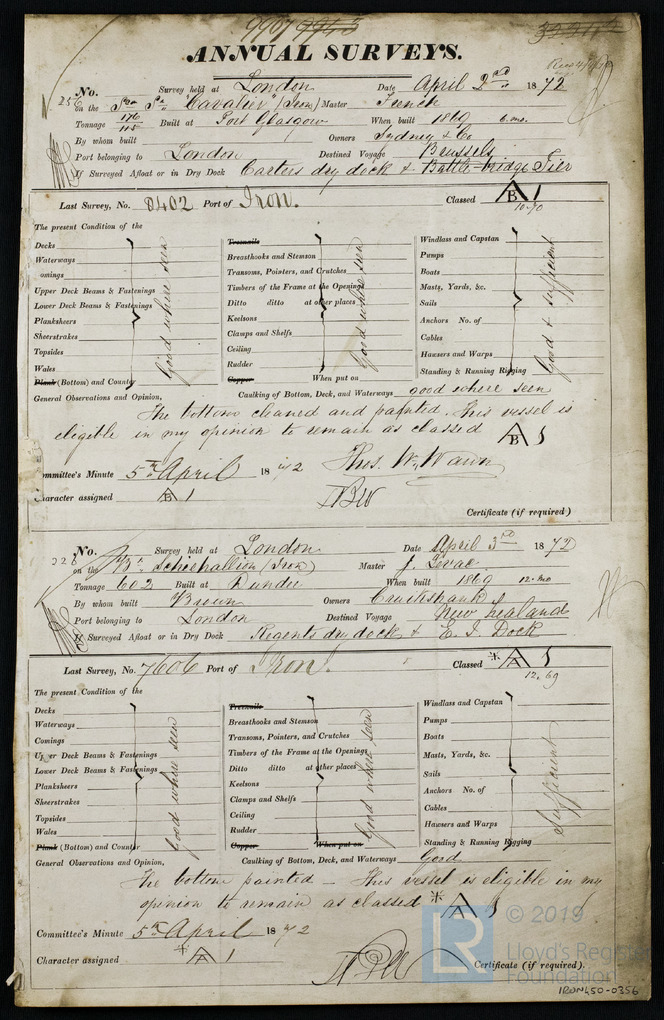 ANNUAL SURVEYS.
No. 256 Survey held at London Date April 2nd 1872
on the "Cavalier" (Iron) Master French
Tonnage 176 115 Built at Port Glasgow When built 1869 6.mo.
By whom built Owners Sydney & Co
Port belonging to London Destined Voyage Brussels
If Surveyed Afloat or in Dry Dock Carters dry dock & Battle-bridge Tier
Last Survey, No. 8402 Port of Iron. Classed B 1
10.70
The present Condition of the
Decks
Waterways
omings
Upper Deck Beams & Fastenings
Lower Deck Beams & Fastenings
Planksheers
Sheerstrakes
Topsides
Wales
Plank (Bottom) and Counter
Good where seen
Treenails
Breasthooks and Stemson
Transoms, Pointers, and Crutches
Timbers of the Frame at the Openings
Ditto ditto at other places
Keelsons
Clamps and Shelfs
Ceiling
Rudder
Copper When put on
Good where seen
Windlass and Capstan
Pumps
Boats
Masts, Yards, &c.
Sails
Anchors No. of
Cables
Hawsers and Warps
Standing & Running Rigging
Good & sufficient
General Observations and Opinion, Caulking of Bottom, Deck, and Waterways good where seen
The bottom cleaned and painted. This vessel is
eligible in my opinion to remain as classed B 1
ommittee's Minute 5th April 1872 Thos. W. Wawn
Character assigned B 1
Certificate (if required)
No. 226 Survey held at London Date April 3rd 1872
on the Schiehallion (Iron) Master J. Levac
Tonnage 602 Built at Dundee When built 1869 12.mo
By whom built Brown Owners Cruikshank
Port belonging to London Destined Voyage New Zealand
If Surveyed Afloat or in Dry Dock Regents dry dock & E. I. Dock
Last Survey, No. 7606 Port of Iron. Classed A 1
12.69
The present Condition of the
Decks
Waterways
Comings
Upper Deck Beams & Fastenings
Lower Deck Beams & Fastenings
Planksheers
Sheerstrakes
Topsides
Wales
Plank (Bottom) and Counter
Good where seen
Treenails
Breasthooks and Stemson
Transoms, Pointers, and Crutches
Timbers of the Frame at the Openings
Ditto ditto at other places
Keelsons
Clamps and Shelfs
Ceiling
Rudder
Copper When put on
Good where seen
Windlass and Capstan
Pumps
Boats
Masts, Yards, &c.
Sails
Anchors No. of
Cables
Hawsers and Warps
Standing & Running Rigging
Sufficient
General Observations and Opinion, Caulking of Bottom, Deck, and Waterways Good
The bottom painted – This vessel is eligible in my
opinion to remain as classed A 1
Committee's Minute 5th April 1872
Character assigned A 1
Certificate (if required).
LR
© 2019
Lloyd's Register
Foundation
IRON450-0356